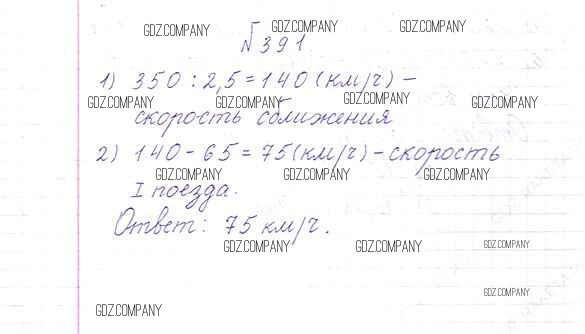 GDZ.COMPANY GDZ.COMPANY GDZ.COMPANY
№391
1) 350 : 2,5 = 140 (км/ч) –
GDZ.COMPANY GDZ.COMPANY GDZ.COMPANY GDZ.COMPANY
скорость сближения
2) 140 - 65 = 75 (км/ч) – скорость
GDZ.COMPANY GDZ.COMPANY GDZ.COMPANY
I поезда.
Ответ: 75 км/ч.
GDZ.COMPANY GDZ.COMPANY GDZ.COMPANY
GDZ.COMPANY
GDZ.COMPANY